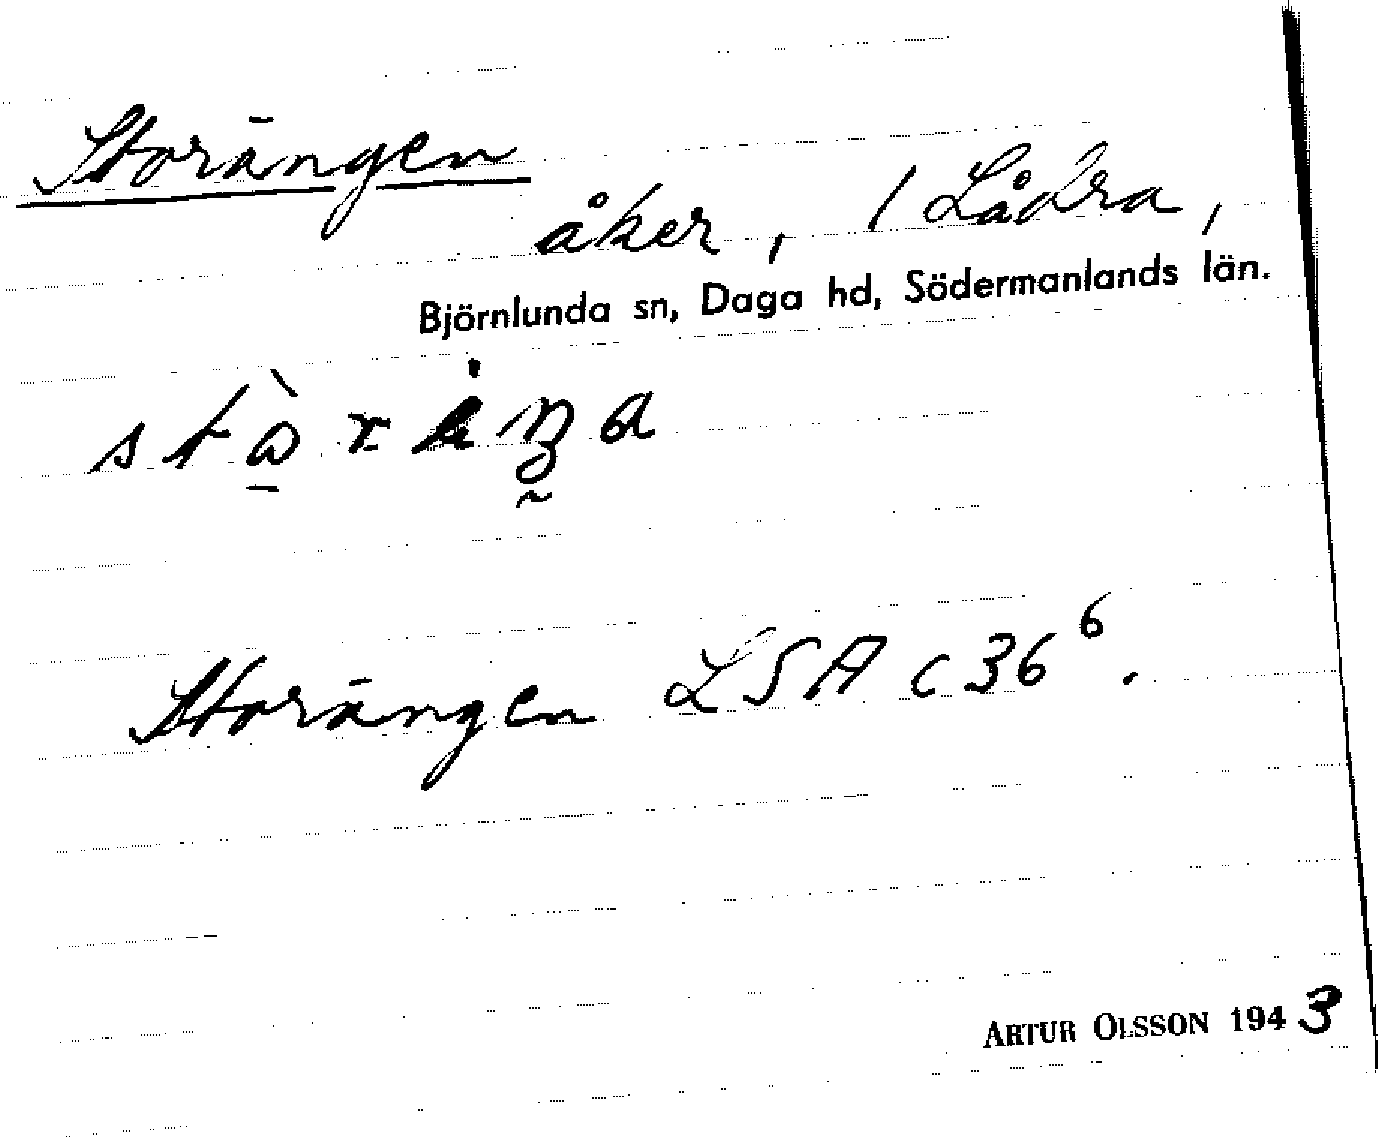 Storängen
åker, 1 Lådra,
Björnlunda sn, Daga hd, Södermanlands län.
Storängen LSA C 36⁶.
ARTUR OLSSON 1943